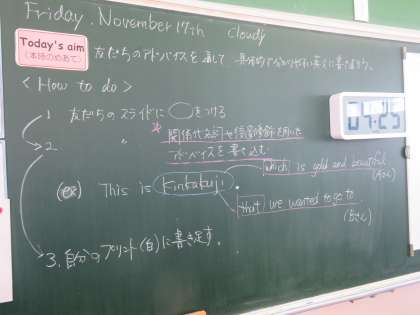 Friday, November 17th cloudy
Today's aim
(本時のめあて)
友だちのアドバイスを通して、具体的で分かりやすい英文に書き直そう。
<How to do>
1 友だちのスライドに○をつける
2 〃 *関係代名詞や後置修飾を用いた
アドバイスを書き込む
(ex) This is Kinkakuji.
which is gold and beautiful
that we wanted to go to
3. 自分のプリント(自)に書き足す。
07:25